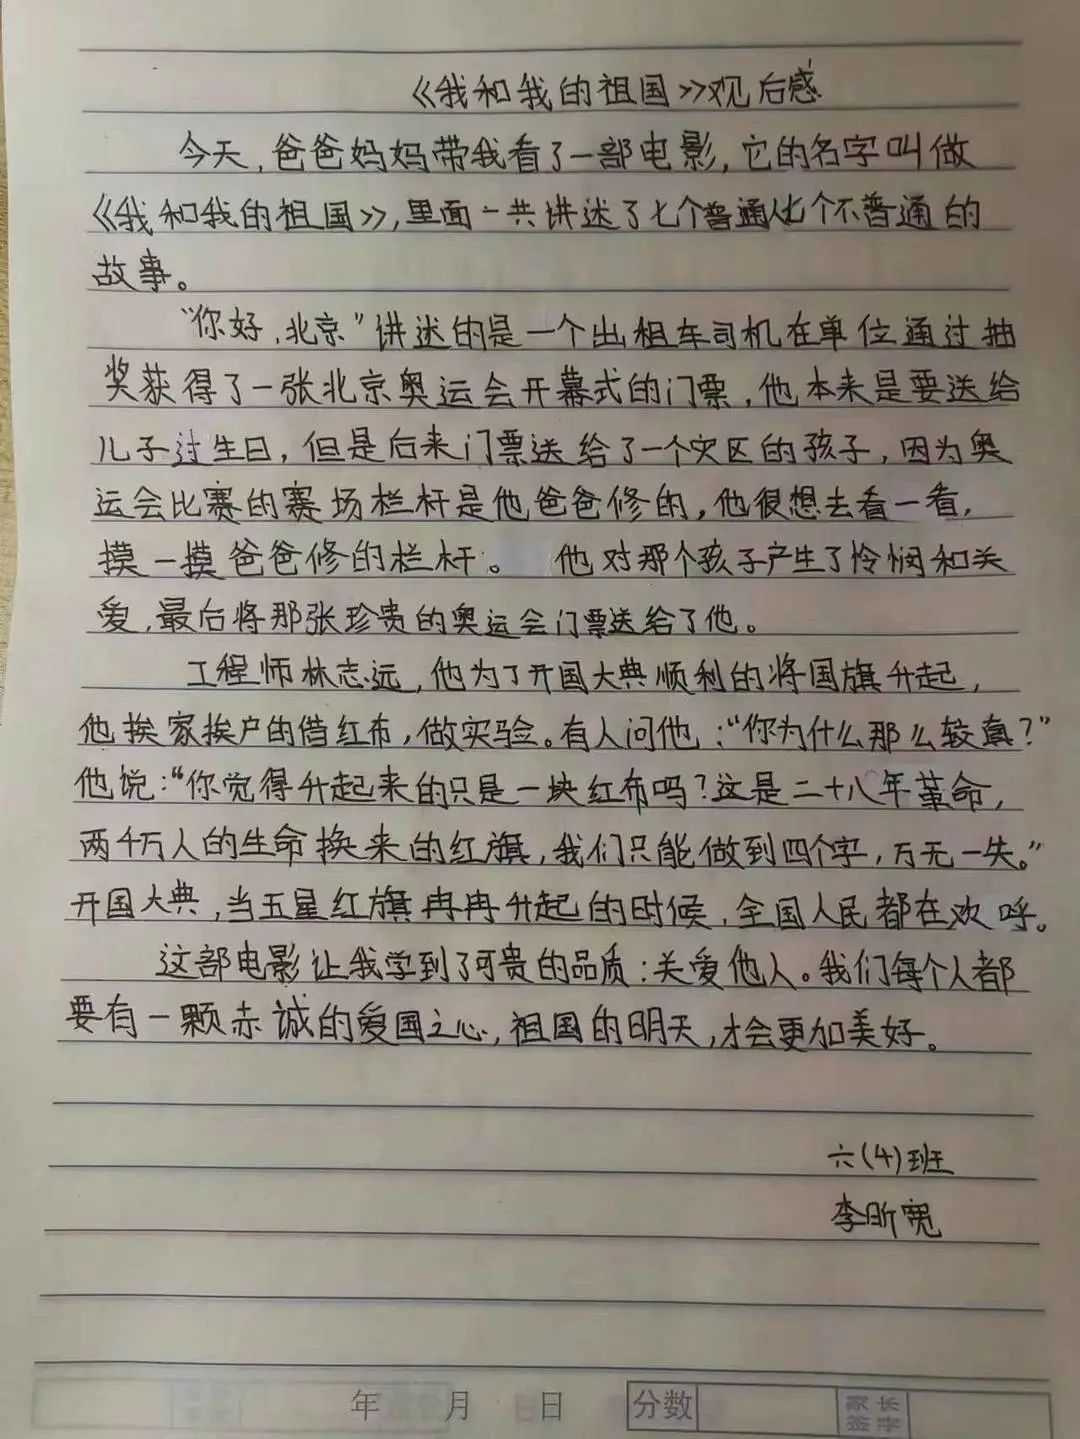 《我和我的祖国》观后感
今天，爸爸妈妈带我看了一部电影，它的名字叫做
《我和我的祖国》，里面一共讲述了七个普通人七个不普通的
故事。
“你好，北京”讲述的是一个出租车司机在单位通过抽
奖获得了一张北京奥运会开幕式的门票，他本来是要送给
儿子过生日，但是后来门票送给了一个灾区的孩子，因为奥
运会比赛的赛场栏杆是他爸爸修的，他很想去看一看，
摸一摸爸爸修的栏杆。他对那个孩子产生了怜悯和关
爱，最后将那张珍贵的奥运会门票送给了他。
工程师林志远，他为了开国大典顺利的将国旗升起，
他挨家挨户的借红布，做实验。有人问他：“你为什么那么较真？”
他说：“你觉得升起来的只是一块红布吗？这是二十八年革命，
两千万人的生命换来的红旗，我们只能做到四个字，万无一失。”
开国大典，当五星红旗冉冉升起的时候，全国人民都在欢呼。
这部电影让我学到了可贵的品质：关爱他人。我们每个人都
要有一颗赤诚的爱国之心，祖国的明天，才会更加美好。
六(4)班
李昕宽
年 月 日 分数